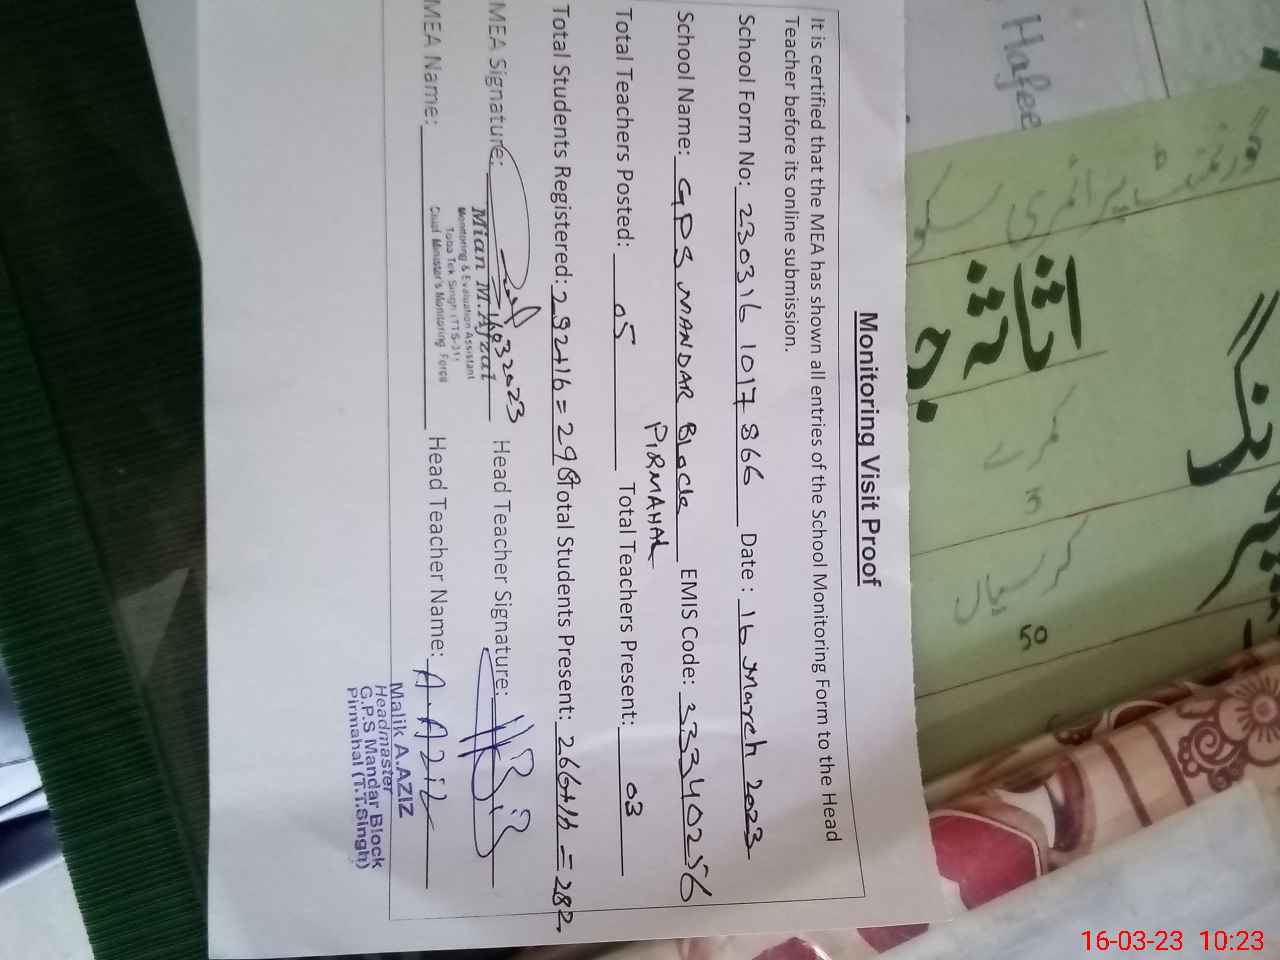 Monitoring Visit Proof
It is certified that the MEA has shown all entries of the School Monitoring Form to the Head
Teacher before its online submission.
School Form No: 230316 1017 866 Date : 16 March 2023
School Name: GPS MANDAR Block EMIS Code: 33340256
PIRMAHAL
Total Teachers Posted: 05 Total Teachers Present: 03
Total Students Registered: 292+16= 298 Total Students Present: 266+16 = 282,
MEA Signature: 16032023 Head Teacher Signature:
Mian M.Afzal
Monitoring & Evaluation Assistant
Toba Tek Singh (TTS-31)
Chief Minister's Monitoring Force
MEA Name: Head Teacher Name: A.AZIZ
Malik A.AZIZ
Headmaster
G.P.S Mandar Block
Pirmahal (T.T.Singh)
Hafee
گورنمنٹ پرائمری سکو
کمرے
3
50
16-03-23 10:23